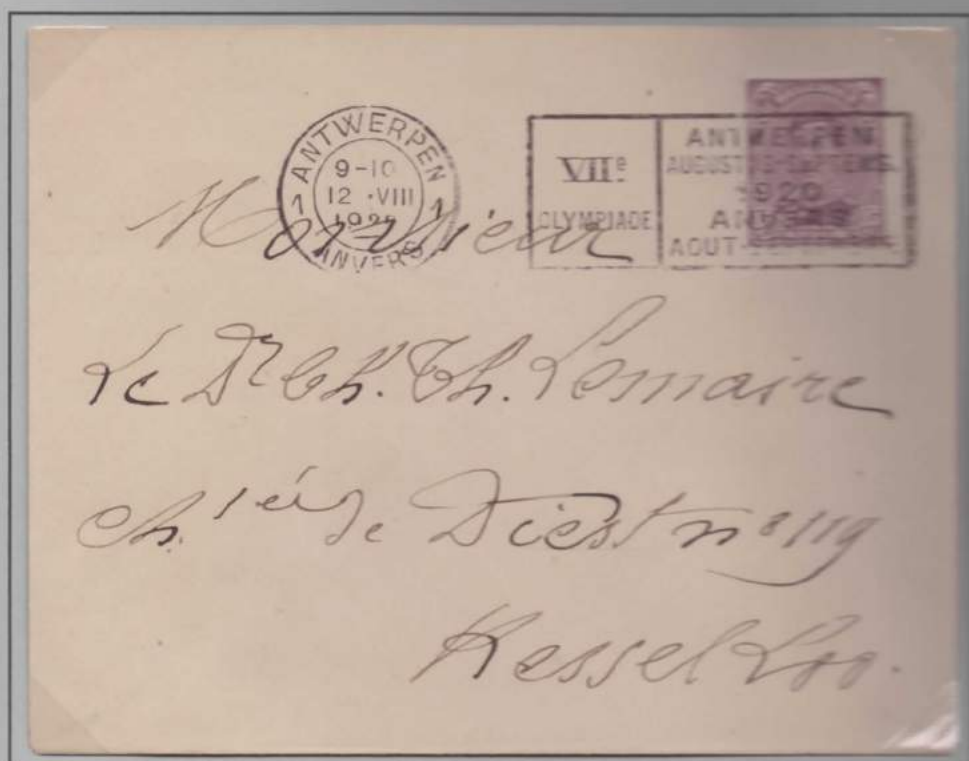 ANTWERPEN
9-10
12 ·VIII
1920
1 1
ANVERS
VIIe
OLYMPIADE
ANTWERPEN
AUGUSTUS-SEPTEMB.
1920
ANVERS
AOUT-SEPTEMBRE
Monsieur
Le Dr Ch. Th. Lemaire
de Diest no 119
Kessel Loo.